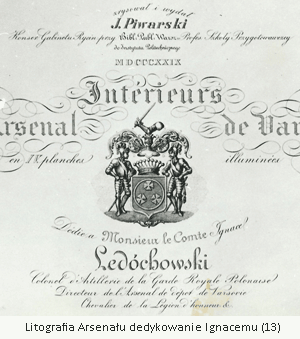 rysował i wydał
J. Piwarski
Konser Gabinetu Rycin przy Bibl. Publ. Warsz. Profes Szkoły Przygotowawczey
do Instytutu Politechnicznego
MDCCCXXIX
Intérieurs
Arsenal de Var
en IX planches illuminées
Dédié a Monsieur le Comte Ignace
Ledóchowski
Colonel d'Artillerie de la Garde Royale Polonaise
Directeur de l'Arsenal de dépot de Varsovie
Chevalier de la Légion d'honneur &.
Litografia Arsenału dedykowanie Ignacemu (13)